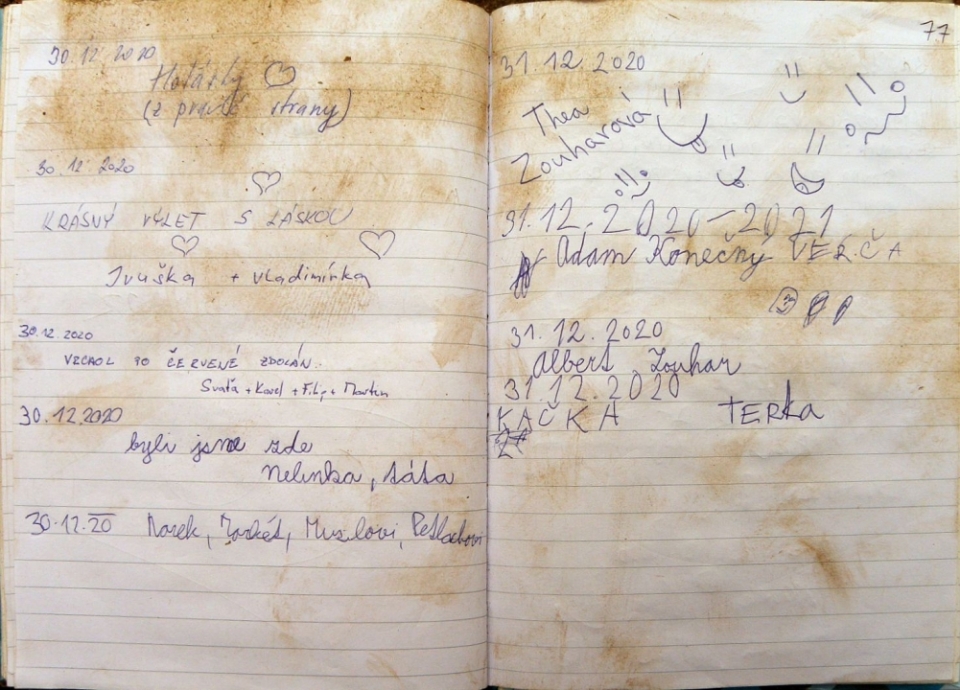 30.12 2020
(z pravé strany)
30.12.2020
KRÁSNÝ VÝLET S LÁSKOU
Ivuška + Vladimírka
30.12.2020
PO ČERVENÉ ZDOLÁN.
Svaťa + Karel + Filip + Morten
30.12.2020
byli jsme zde
Nelinka, táta
30.12.20 Marek, Markét, Musilovi,
77
31.12 2020
Thea
Zouharová
31.12.2020-2021
Adam Konečný VERČA
31.12.2020
Albert Zouhar
31.12.2020
KAČKA TERKA